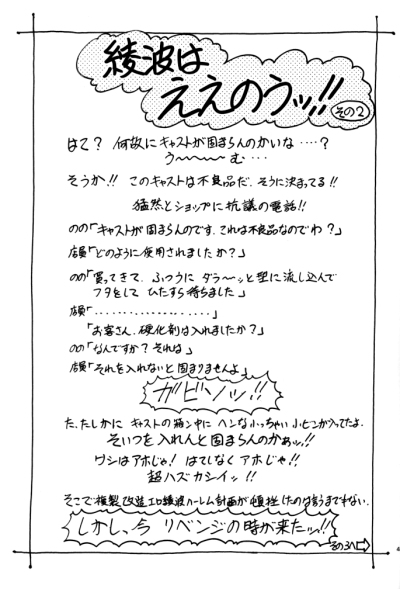 綾波は
ええのうッ!!
その2
はて? 何故にキャストが固まらんのかいな‥‥?
う〜〜〜〜む‥‥
そうか!! このキャストは不良品だ、そうに決まってる!!
猛然とショップに抗議の電話!!
のの「キャストが固まらんのです。これは不良品なのでわ?」
店員「どのように使用されましたか?」
のの「買ってきて、ふつうに ダラ〜ッと型に流し込んで
フタをして ひたすら待ちました」
店員「・・・・・・・・・・・・・・・・・・」
「お客さん、硬化剤は入れましたか?」
のの「なんですか? それは」
店員「それを入れないと固まりませんよ」
ガビソッ!!
た、たしかに キャストの箱ン中に ヘンなちっちゃい小ビンが入ってたよ。
そいつを入れんと固まらんのかぁッ!!
ワシはアホじゃ! はてしなくアホじゃ!!
超ハズカシイッ!!
そこで複製改造エロ綾波ハーレム計画が頓挫したのは言うまでもない。
しかし、今 リベンジの時が来たッ!!
その3へ